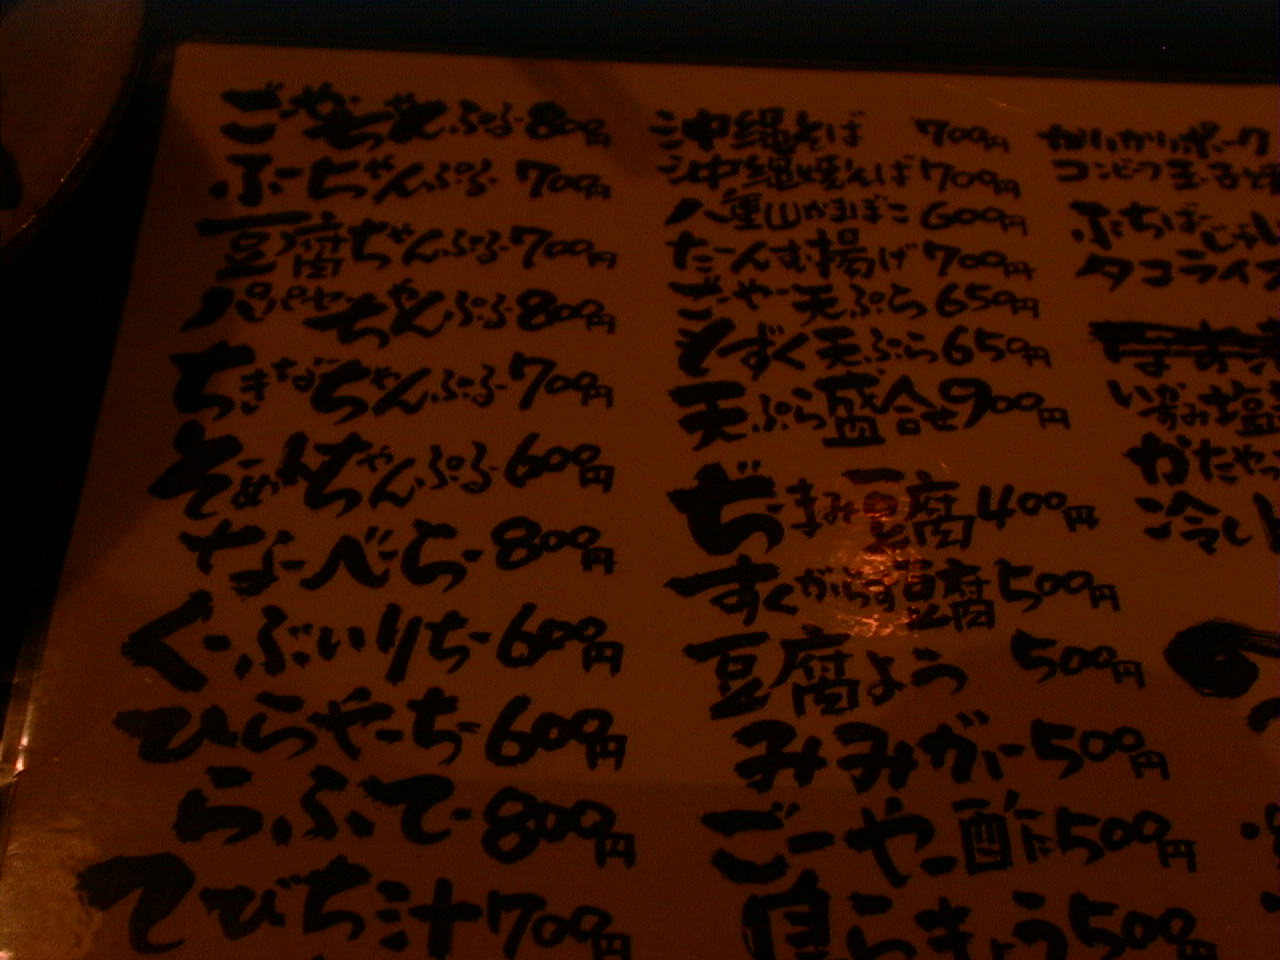 ごーやーちゃんぷるー 800円
ふーちゃんぷるー 700円
豆腐ちゃんぷるー 700円
パパヤーちゃんぷるー 800円
ちきなーちゃんぷるー 700円
そーめんちゃんぷるー 600円
なーべーらー 800円
くーぶいりちー 600円
ひらやーちー 600円
らふてー 800円
てびち汁 700円
沖縄そば 700円
沖縄焼そば 700円
八重山かまぼこ 600円
たーんむ揚げ 700円
ごーやー天ぷら 650円
もずく天ぷら 650円
天ぷら盛合せ 900円
ぢーまみ豆腐 400円
すくがらす豆腐 500円
豆腐よう 500円
みみがー 500円
ごーやー酢 500円
島らっきょう 500円
かりかりポーク
コンビーフ玉子
ふちばーじゅーしー
タコライス
いかすみ塩
がたやっ
冷し